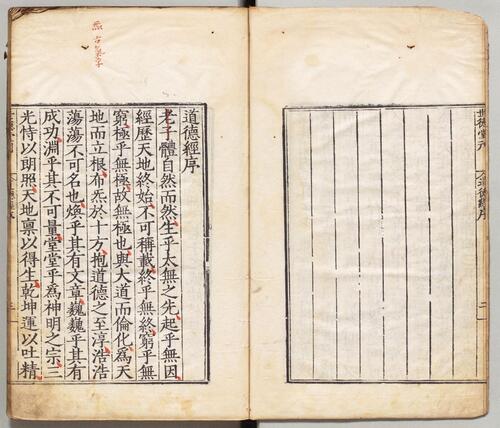 世德堂刊
道德經序
道德經序
老子體自然而然生乎太無之先起乎無因
經歷天地終始不可稱載終乎無終窮乎無
窮極乎無極故無極也與大道而倫化爲天
地而立根布炁於十方抱道德之至淳浩浩
蕩蕩不可名也煥乎其有文章巍巍乎其有
成功淵乎其不可量堂堂乎爲神明之宗三
光恃以朗照天地禀以得生乾坤運以吐精